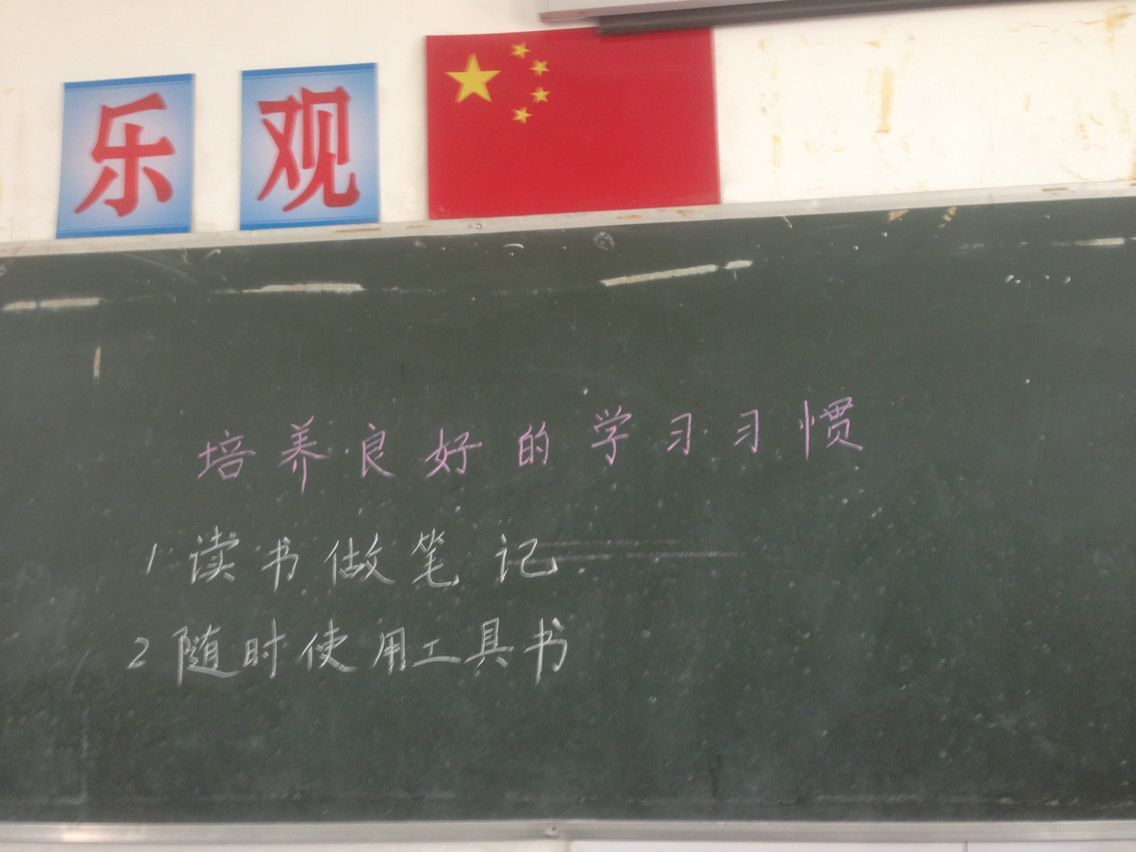 乐观
培养良好的学习习惯
1 读书做笔记
2 随时使用工具书